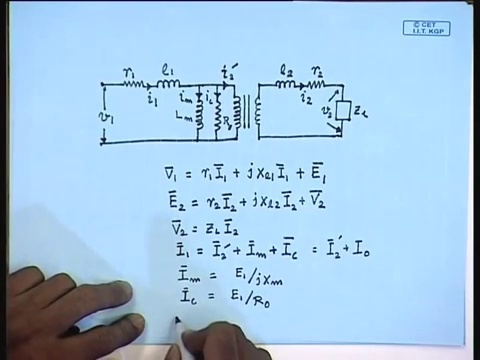 © CET
I.I.T. KGP
r₁ l₁ i₂′ l₂ r₂
i₁ iₘ i_c i₂
v₁ Lₘ R₀ v₂ Z_L
V̄₁ = r₁ Ī₁ + j x_l1 Ī₁ + Ē₁
Ē₂ = r₂ Ī₂ + j x_l2 Ī₂ + V̄₂
V̄₂ = Z_L Ī₂
Ī₁ = Ī₂′ + Īₘ + Ī_c = Ī₂′ + I₀
Īₘ = E₁/jxₘ
Ī_c = E₁/R₀